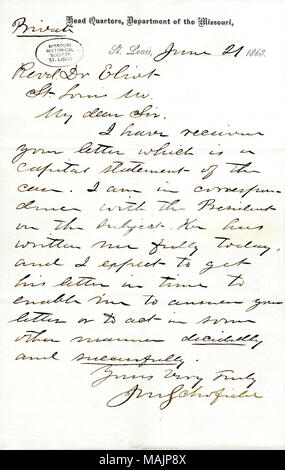 Head Quarters, Department of the Missouri,
Private
MISSOURI
HISTORICAL
SOCIETY
ST. LOUIS
St. Louis, June 21 1863.
Revd Dr Eliot
St Louis Mo.
My dear Sir.
I have received
your letter which is a
capital statement of the
case. I am in correspon-
dence with the President
on the subject. He has
written me fully today,
and I expect to get
his letter in time to
enable me to answer your
letter or to act in some
other manner decidedly
and successfully.
Yours Very Truly
JMSchofield
alamy
Image ID: MAJP8X
www.alamy.com